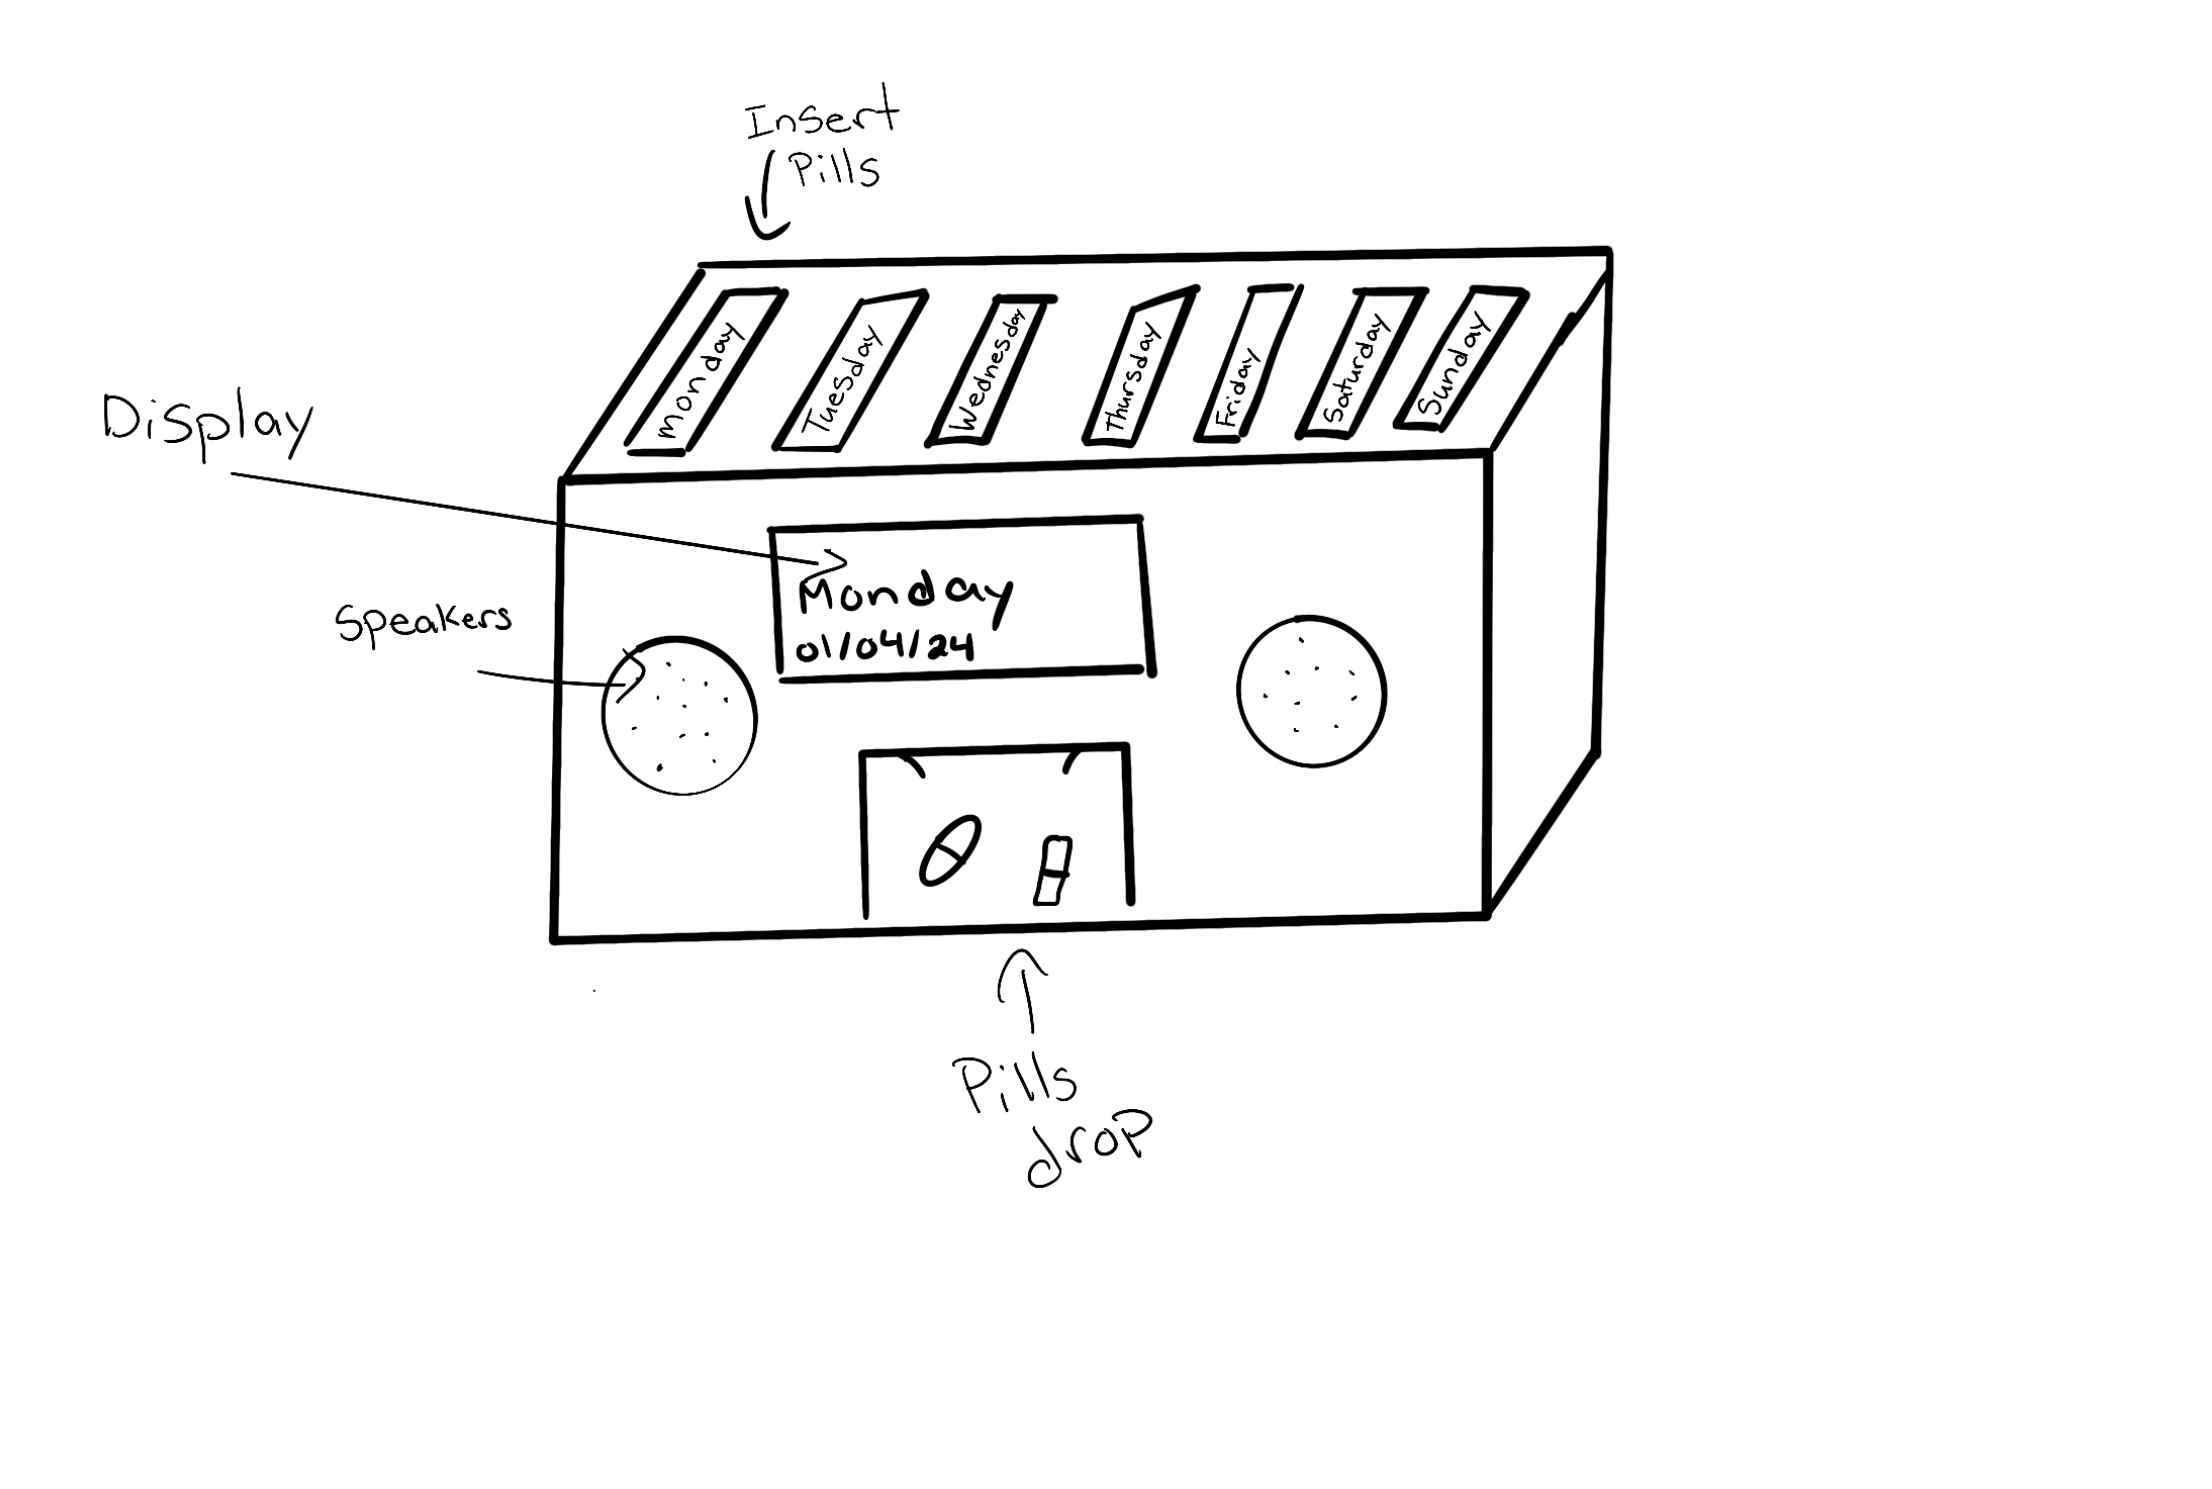 Insert
Pills
Monday
Tuesday
Wednesday
Thursday
Friday
Saturday
Sunday
Display
Monday
01/04/24
Speakers
Pills
drop